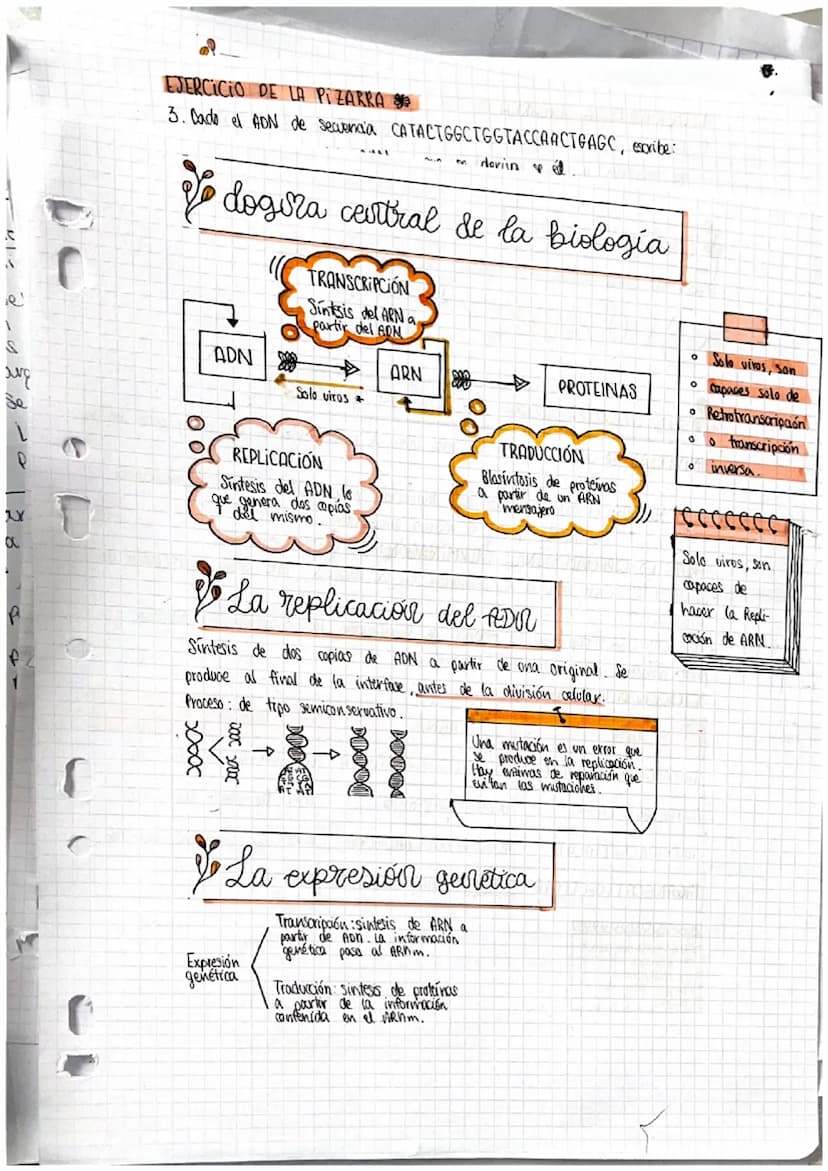 EJERCICIO DE LA PIZARRA
3. Dado el ADN de secuencia CATACTGGCTGGTACCAACTGAGC, escribe:
dogma central de la biología
TRANSCRIPCIÓN
Síntesis del ARN a
partir del ADN
ADN
ARN
PROTEINAS
Solo virus *
REPLICACIÓN
Síntesis del ADN lo
que genera dos copias
del mismo.
TRADUCCIÓN
Biosíntesis de proteínas
a partir de un ARN
mensajero
Solo virus, son
capaces solo de
Retrotranscripción
o transcripción
inversa.
Solo virus, son
capaces de
hacer la Repli-
cación de ARN.
La replicación del ADN
Síntesis de dos copias de ADN a partir de una original. Se
produce al final de la interfase, antes de la división celular.
Proceso: de tipo semiconservativo.
Una mutación es un error que
se produce en la replicación.
Hay enzimas de reparación que
evitan las mutaciones.
La expresión genética
Expresión
genética
Transcripción: síntesis de ARN a
partir de ADN. La información
genética pasa al ARNm.
Traducción: síntesis de proteínas
a partir de la información
contenida en el ARNm.